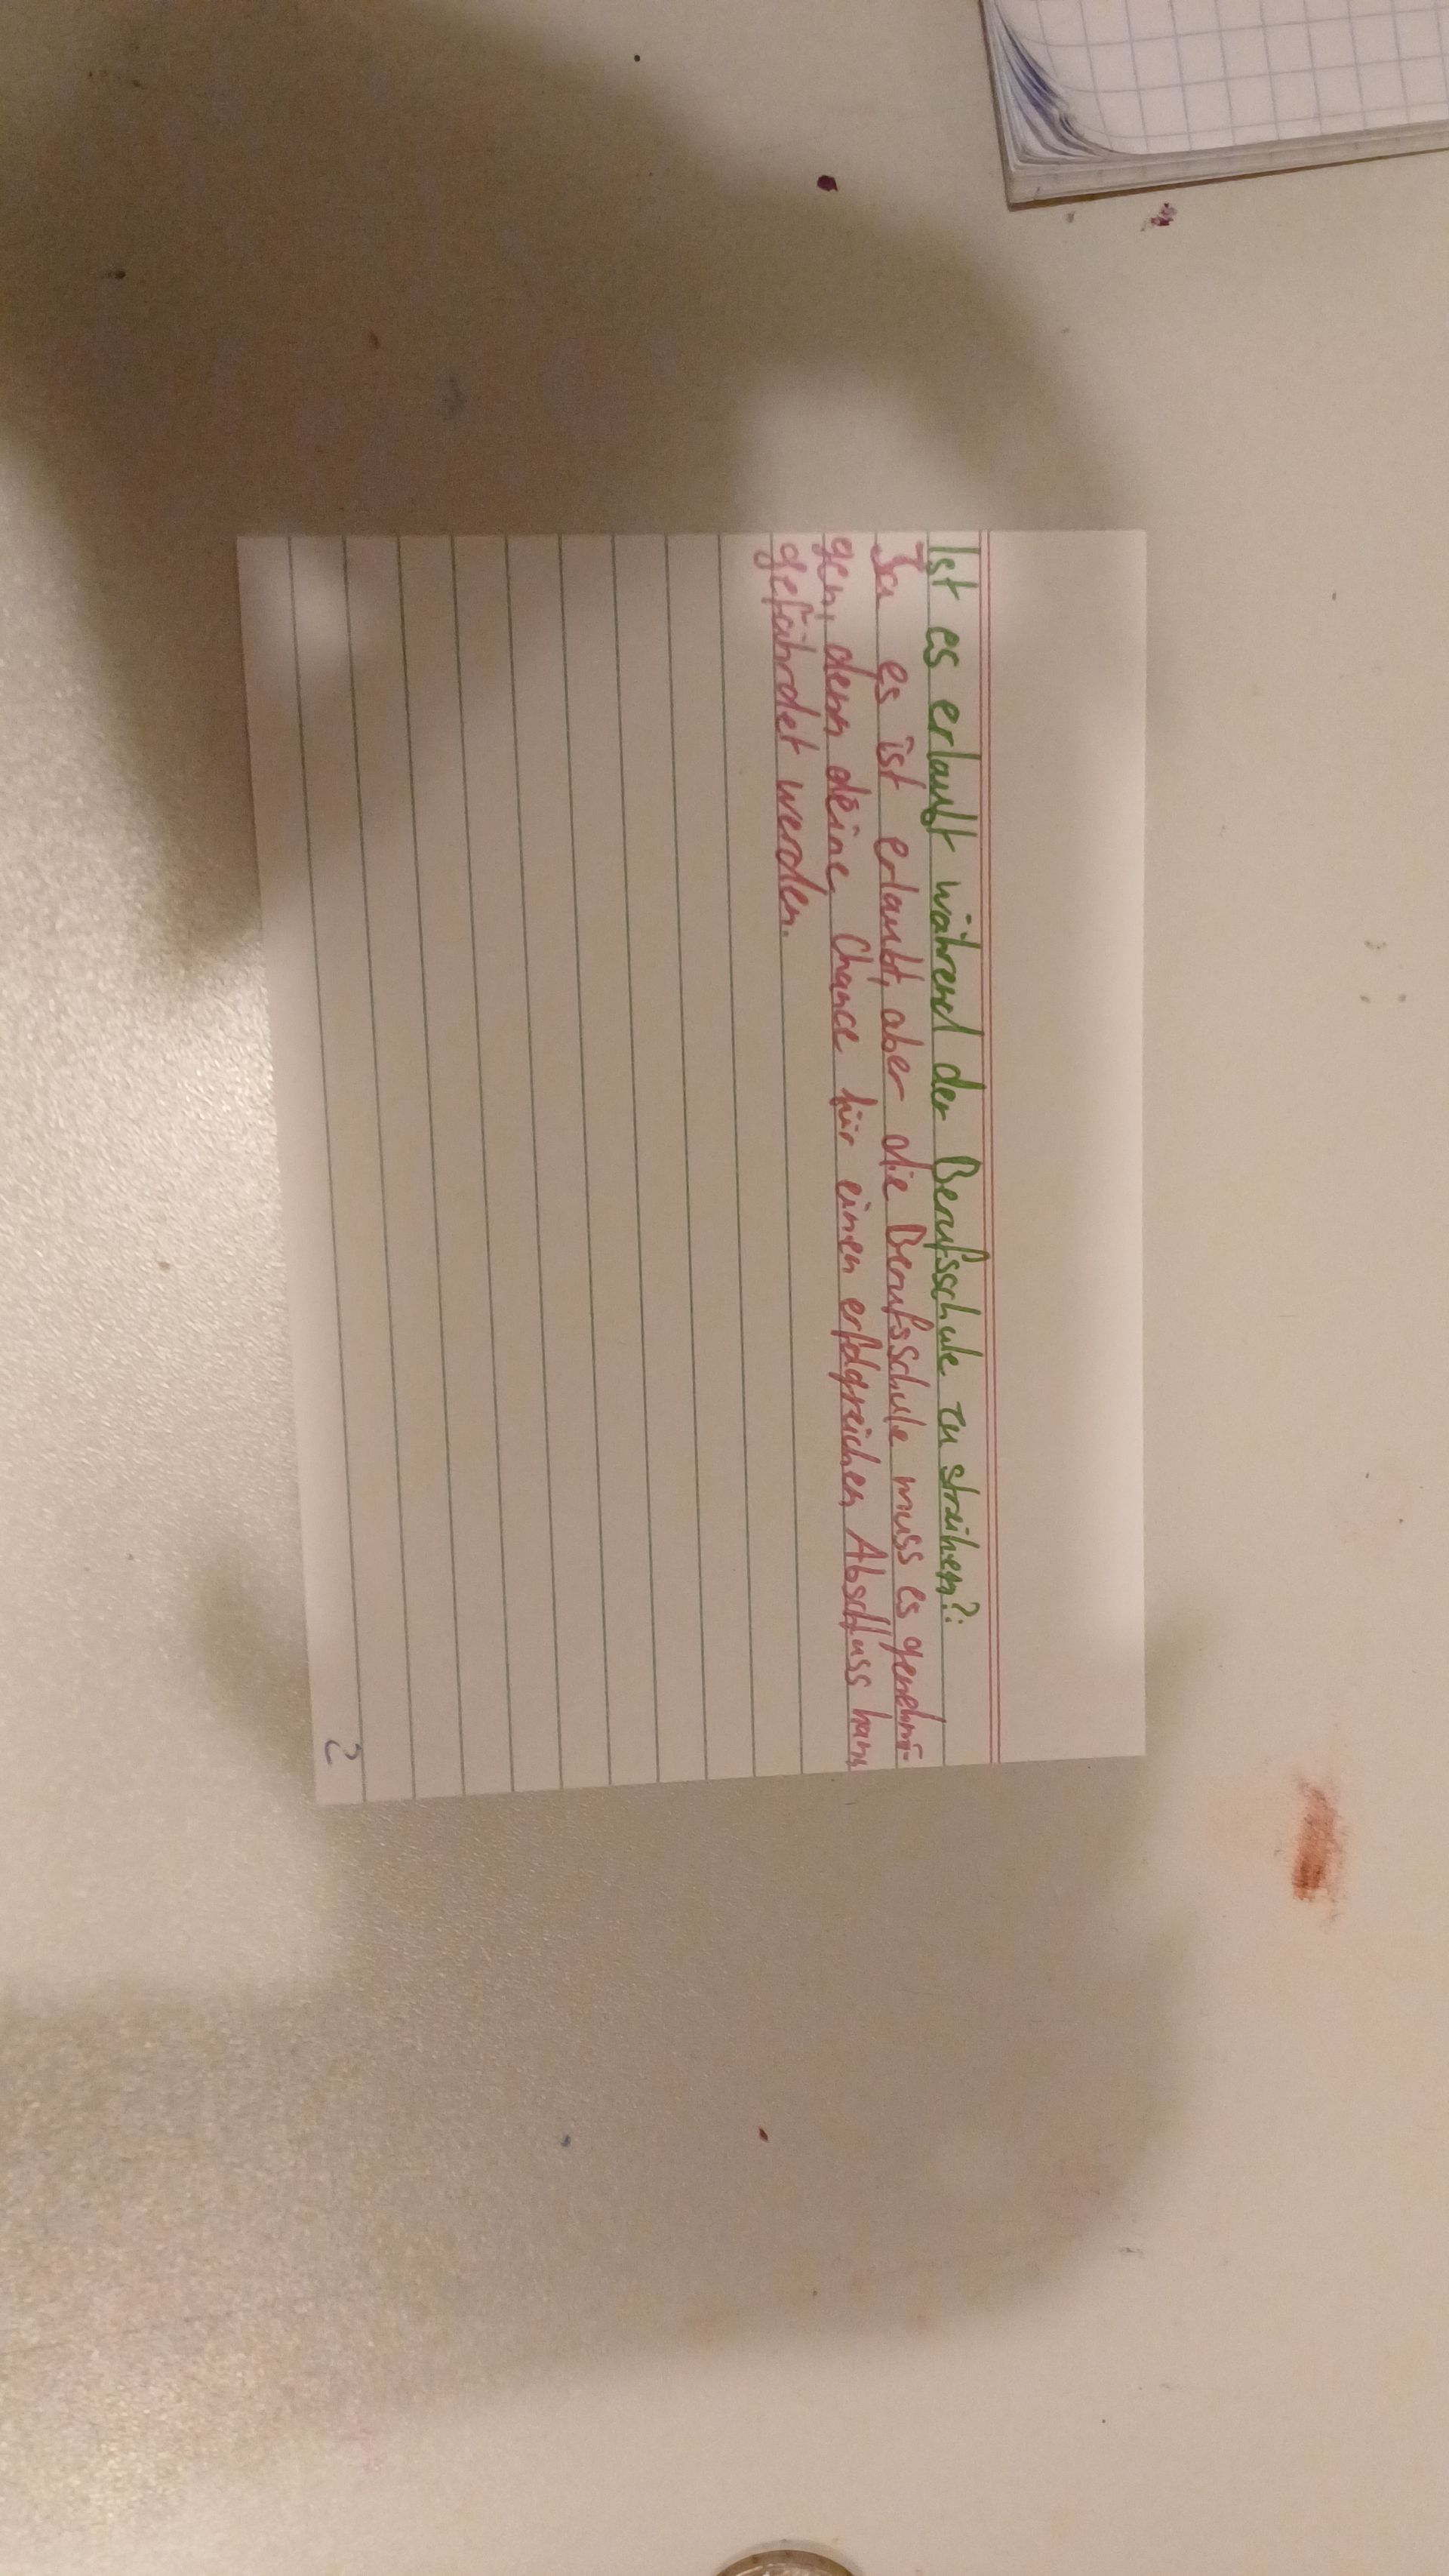 Ist es erlaubt während der Berufsschule zu streiken?:
Ja es ist erlaubt, aber die Berufsschule muss es genehmi-
gen, denn deine Chance für einen erfolgreichen Abschluss kann
gefährdet werden.
2